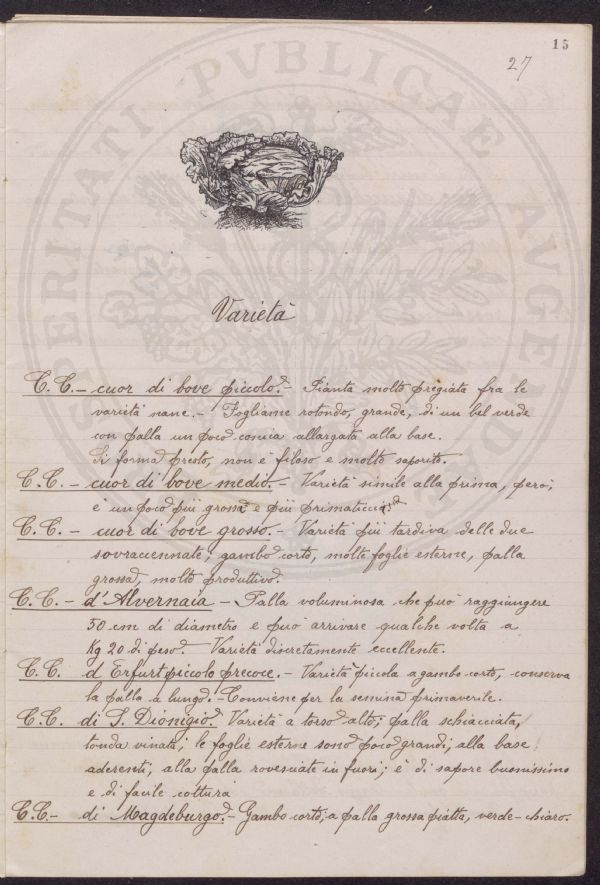 15
27
VERITATI PVBLICAE AVGENDAE
Varietà
C. C. – cuor di bove piccolo. – Pianta molto pregiata fra le
varietà nane. – Fogliame rotondo, grande, di un bel verde
con palla un poco conica allargata alla base.
Si forma presto, non è filoso e molto saporito.
C. C. – cuor di bove medio. – Varietà simile alla prima, però,
è un poco più grossa e più primaticcia
C. C. – cuor di bove grosso. – Varietà più tardiva delle due
sovraccennate; gambo corto, molte foglie esterne, palla
grossa, molto produttivo.
C. C. – d'Alvernaia – Palla voluminosa che può raggiungere
50 cm di diametro e può arrivare qualche volta a
Kg 20 di peso. Varietà discretamente eccellente.
C. C. d Erfurt piccolo precoce. – Varietà piccola a gambo corto, conserva
la palla a lungo. – Conviene per la semina primaverile.
C. C. di S. Dionigio. Varietà a torso alto; palla schiacciata,
tonda vinata; le foglie esterne sono poco grandi; alla base
aderenti, alla palla rovesciate in fuori; è di sapore buonissimo
e di facile cottura
C. C. – di Magdeburgo. – Gambo corto; a palla grossa piatta, verde-chiaro.